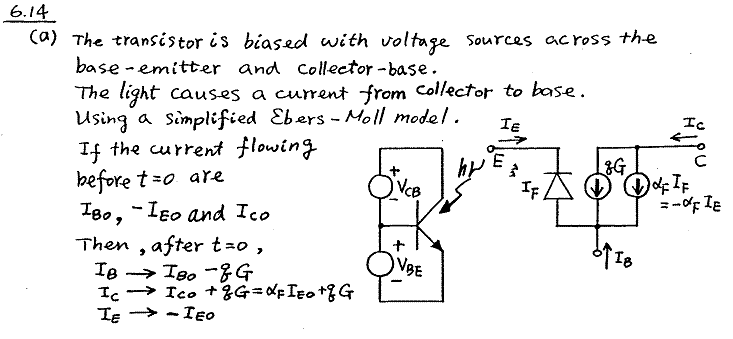 6.14
(a) The transistor is biased with voltage sources across the
base-emitter and collector-base.
The light causes a current from collector to base.
Using a simplified Ebers-Moll model.
If the current flowing
before t=0 are
I_BO, -I_EO and I_CO
Then, after t=0,
I_B → I_BO - qG
I_C → I_CO + qG = α_F I_EO + qG
I_E → -I_EO
+
V_CB
-
+
V_BE
-
hν
I_E
E
I_F
qG
I_C
C
α_F I_F
= -α_F I_E
I_B